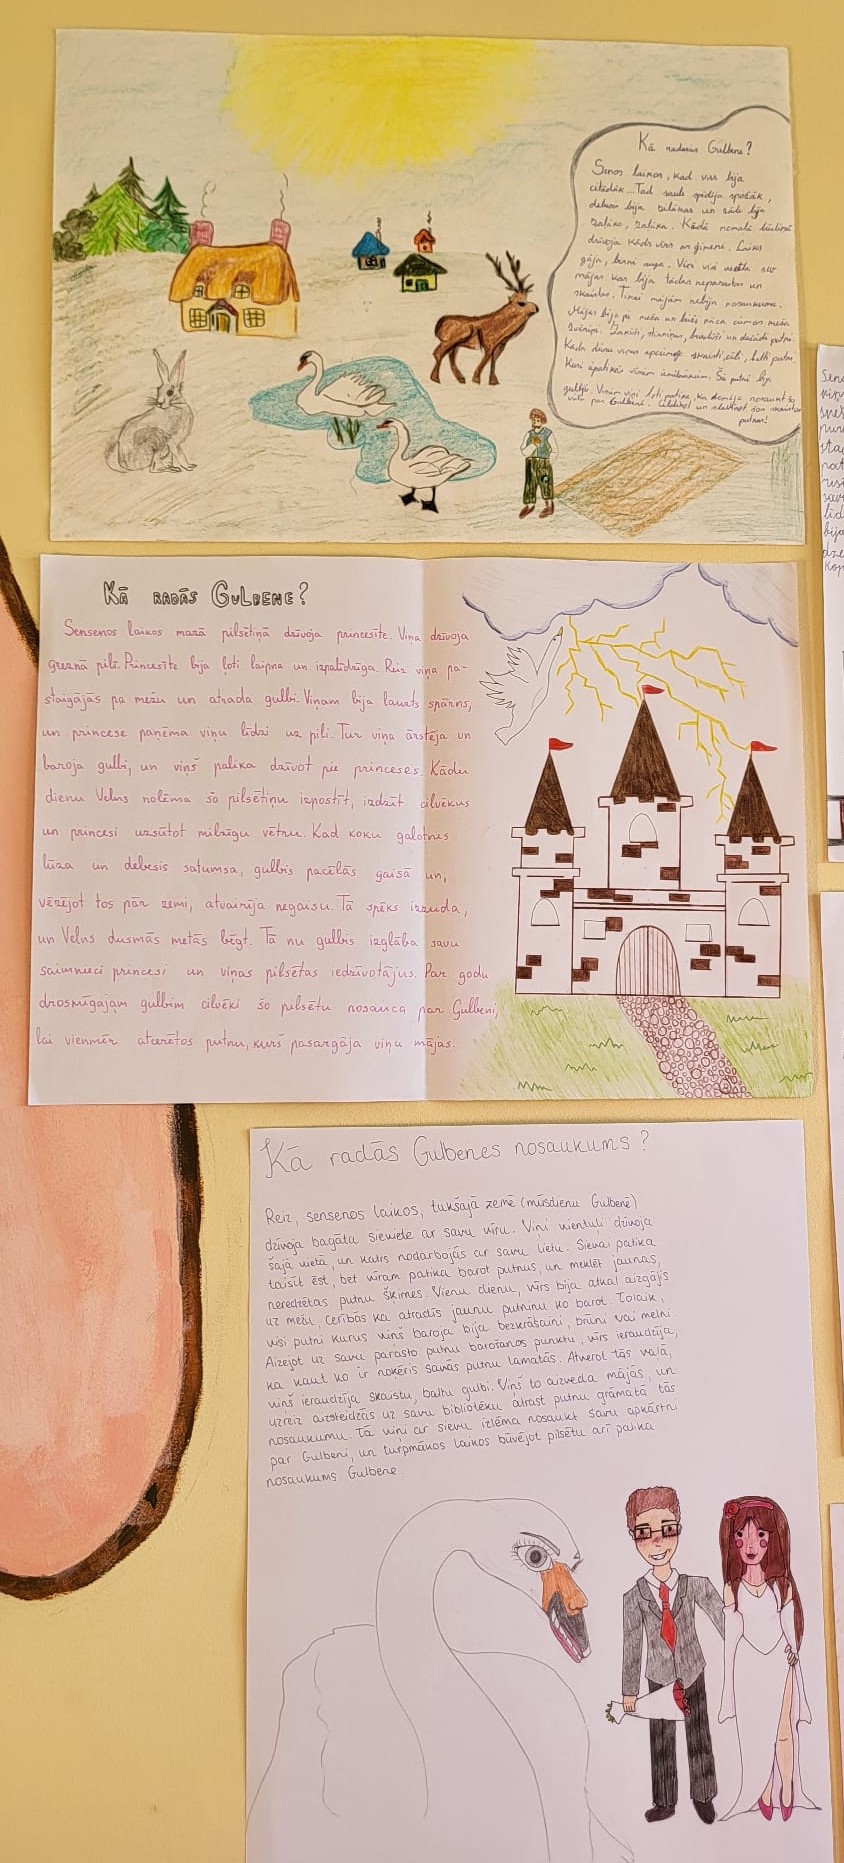 Kā radusies Gulbene?
Senos laikos, kad viss bija
citādāk... Tad saule spīdēja spožāk,
debess bija zilākas un zāle bija
zaļāka, zaļāka. Kādā nomalē
dzīvoja kāds vīrs ar ģimeni. Laiks
gāja, bērni auga. Vīrs visi
mājas kas bija tādas neparastas un
skaistas. Tikai mājām nebija nosaukuma.
Mājas bija pie meža un bieži nāca ciemos meža
zvēriņi. Zaķīši, stirniņas, briedīši un dažādi putni.
Kādu dienu vīrus apciemoja skaisti, cēli, balti putni.
Kuri apatikās vīram Šie putni bija
gulbji. Vīram viņi ļoti patika, ka domāja nosaukt šo
vietu par Gulbeni. un slavinot šos skaistos
putnus!
Kā radās Gulbene?
Sensenos laikos mazā pilsētiņā dzīvoja princesīte. Viņa dzīvoja
greznā pilī. Princesīte bija ļoti laipna un izpalīdzīga. Reiz viņa pa-
staigājās pa mežu un atrada gulbi. Viņam bija lauzts spārns,
un princese paņēma viņu līdzi uz pili. Tur viņa ārstēja un
baroja gulbi, un viņš palika dzīvot pie princeses. Kādu
dienu Velns nolēma šo pilsētiņu izpostīt, izdzīt cilvēkus
un princesi uzsūtot milzīgu vētru. Kad koku galotnes
lūza un debesis satumsa, gulbis pacēlās gaisā un,
vēzējot tos pār zemi, atvairīja negaisu. Tā spēks izzuda,
un Velns dusmās metās bēgt. Tā nu gulbis izglāba savu
saimnieci princesi un viņas pilsētas iedzīvotājus. Par godu
drosmīgajam gulbim cilvēki šo pilsētu nosauca par Gulbeni,
lai vienmēr atcerētos putnu, kurš pasargāja viņu mājas.
Kā radās Gulbenes nosaukums?
Reiz, sensenos laikos, tukšajā zemē (mūsdienu Gulbenē)
dzīvoja bagāta sieviete ar savu vīru. Viņi vientuļi dzīvoja
šajā vietā, un katrs nodarbojās ar savu lietu. Sievai patika
taisīt ēst, bet vīram patika barot putnus, un meklēt jaunas,
neredzētas putnu šķirnes. Vienu dienu, vīrs bija atkal aizgājis
uz mežu, cerībās ka atradīs jaunu putniņu ko barot. Tolaik,
visi putni kurus viņš baroja bija bezkrāsaini, brūni vai melni.
Aizejot uz savu parasto putnu barošanas punktu, vīrs ieraudzīja,
ka kaut ko ir noķēris savās putnu lamatās. Atverot tās vaļā,
viņš ieraudzīja skaistu, baltu gulbi. Viņš to aizveda mājās, un
uzreiz aizsteidzās uz savu bibliotēku atrast putnu grāmatā tās
nosaukumu. Tā viņi ar sievu izlēma nosaukt savu apkārtni
par Gulbeni, un turpmākos laikos būvējot pilsētu arī palika
nosaukums Gulbene.